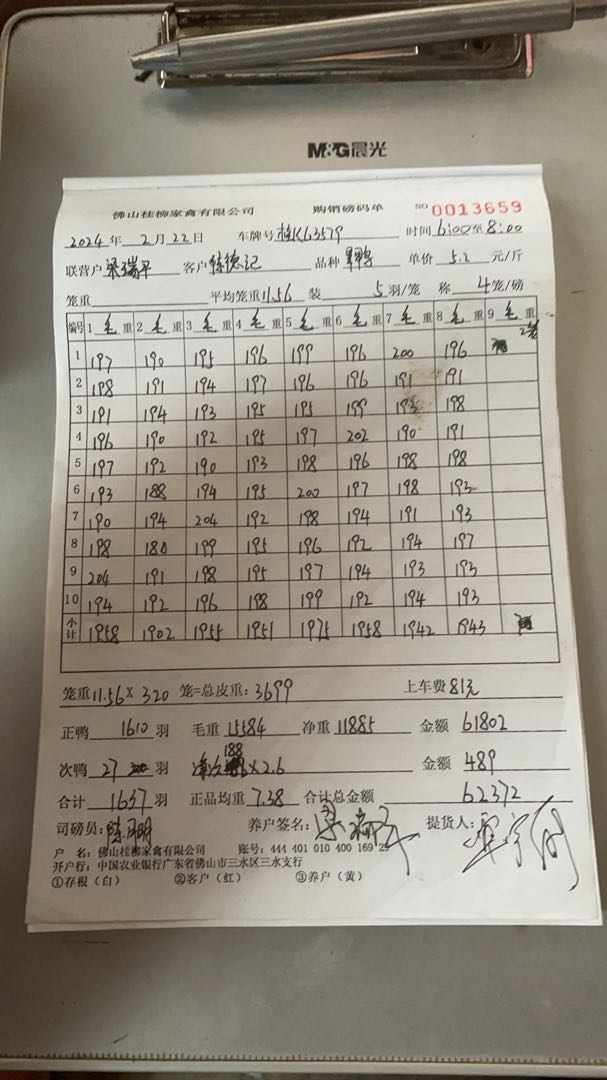 M&G晨光
佛山桂柳家禽有限公司 购销磅码单 NO 0013659
2024年 2月 22日 车牌号 桂K63579 时间 6:00至8:00
联营户 梁瑞平 客户 德记 品种 单价 5.2 元/斤
笼重 平均笼重 11.56 装 5 羽/笼 称 4 笼/磅
编号 1 毛重 2 毛重 3 毛重 4 毛重 5 毛重 6 毛重 7 毛重 8 毛重 9 毛重
1 197 190 195 196 199 196 200 196
2 198 191 194 197 196 196 191 191
3 191 194 193 195 195 199 193 198
4 196 190 192 195 197 202 190 191
5 197 192 190 193 198 196 198 198
6 193 188 194 195 200 197 198 193
7 190 194 204 192 198 194 191 193
8 198 180 199 195 196 192 194 197
9 204 191 198 195 197 194 193 193
10 194 192 196 198 199 192 194 193
小计 1958 1902 1955 1951 1975 1958 1942 1943
笼重 11.56 × 320 笼=总皮重: 3699 上车费 81元
正鸭 1610 羽 毛重 15584 净重 11885 金额 61802
188
次鸭 27 羽 ×2.6 金额 489
合计 1637 羽 正品均重 7.38 合计总金额 62372
司磅员: 养户签名: 梁瑞平 提货人:
户 名: 佛山桂柳家禽有限公司 账号: 444 401 010 400 169 25
开户行: 中国农业银行广东省佛山市三水区三水支行
①存根（白） ②客户（红） ③养户（黄）